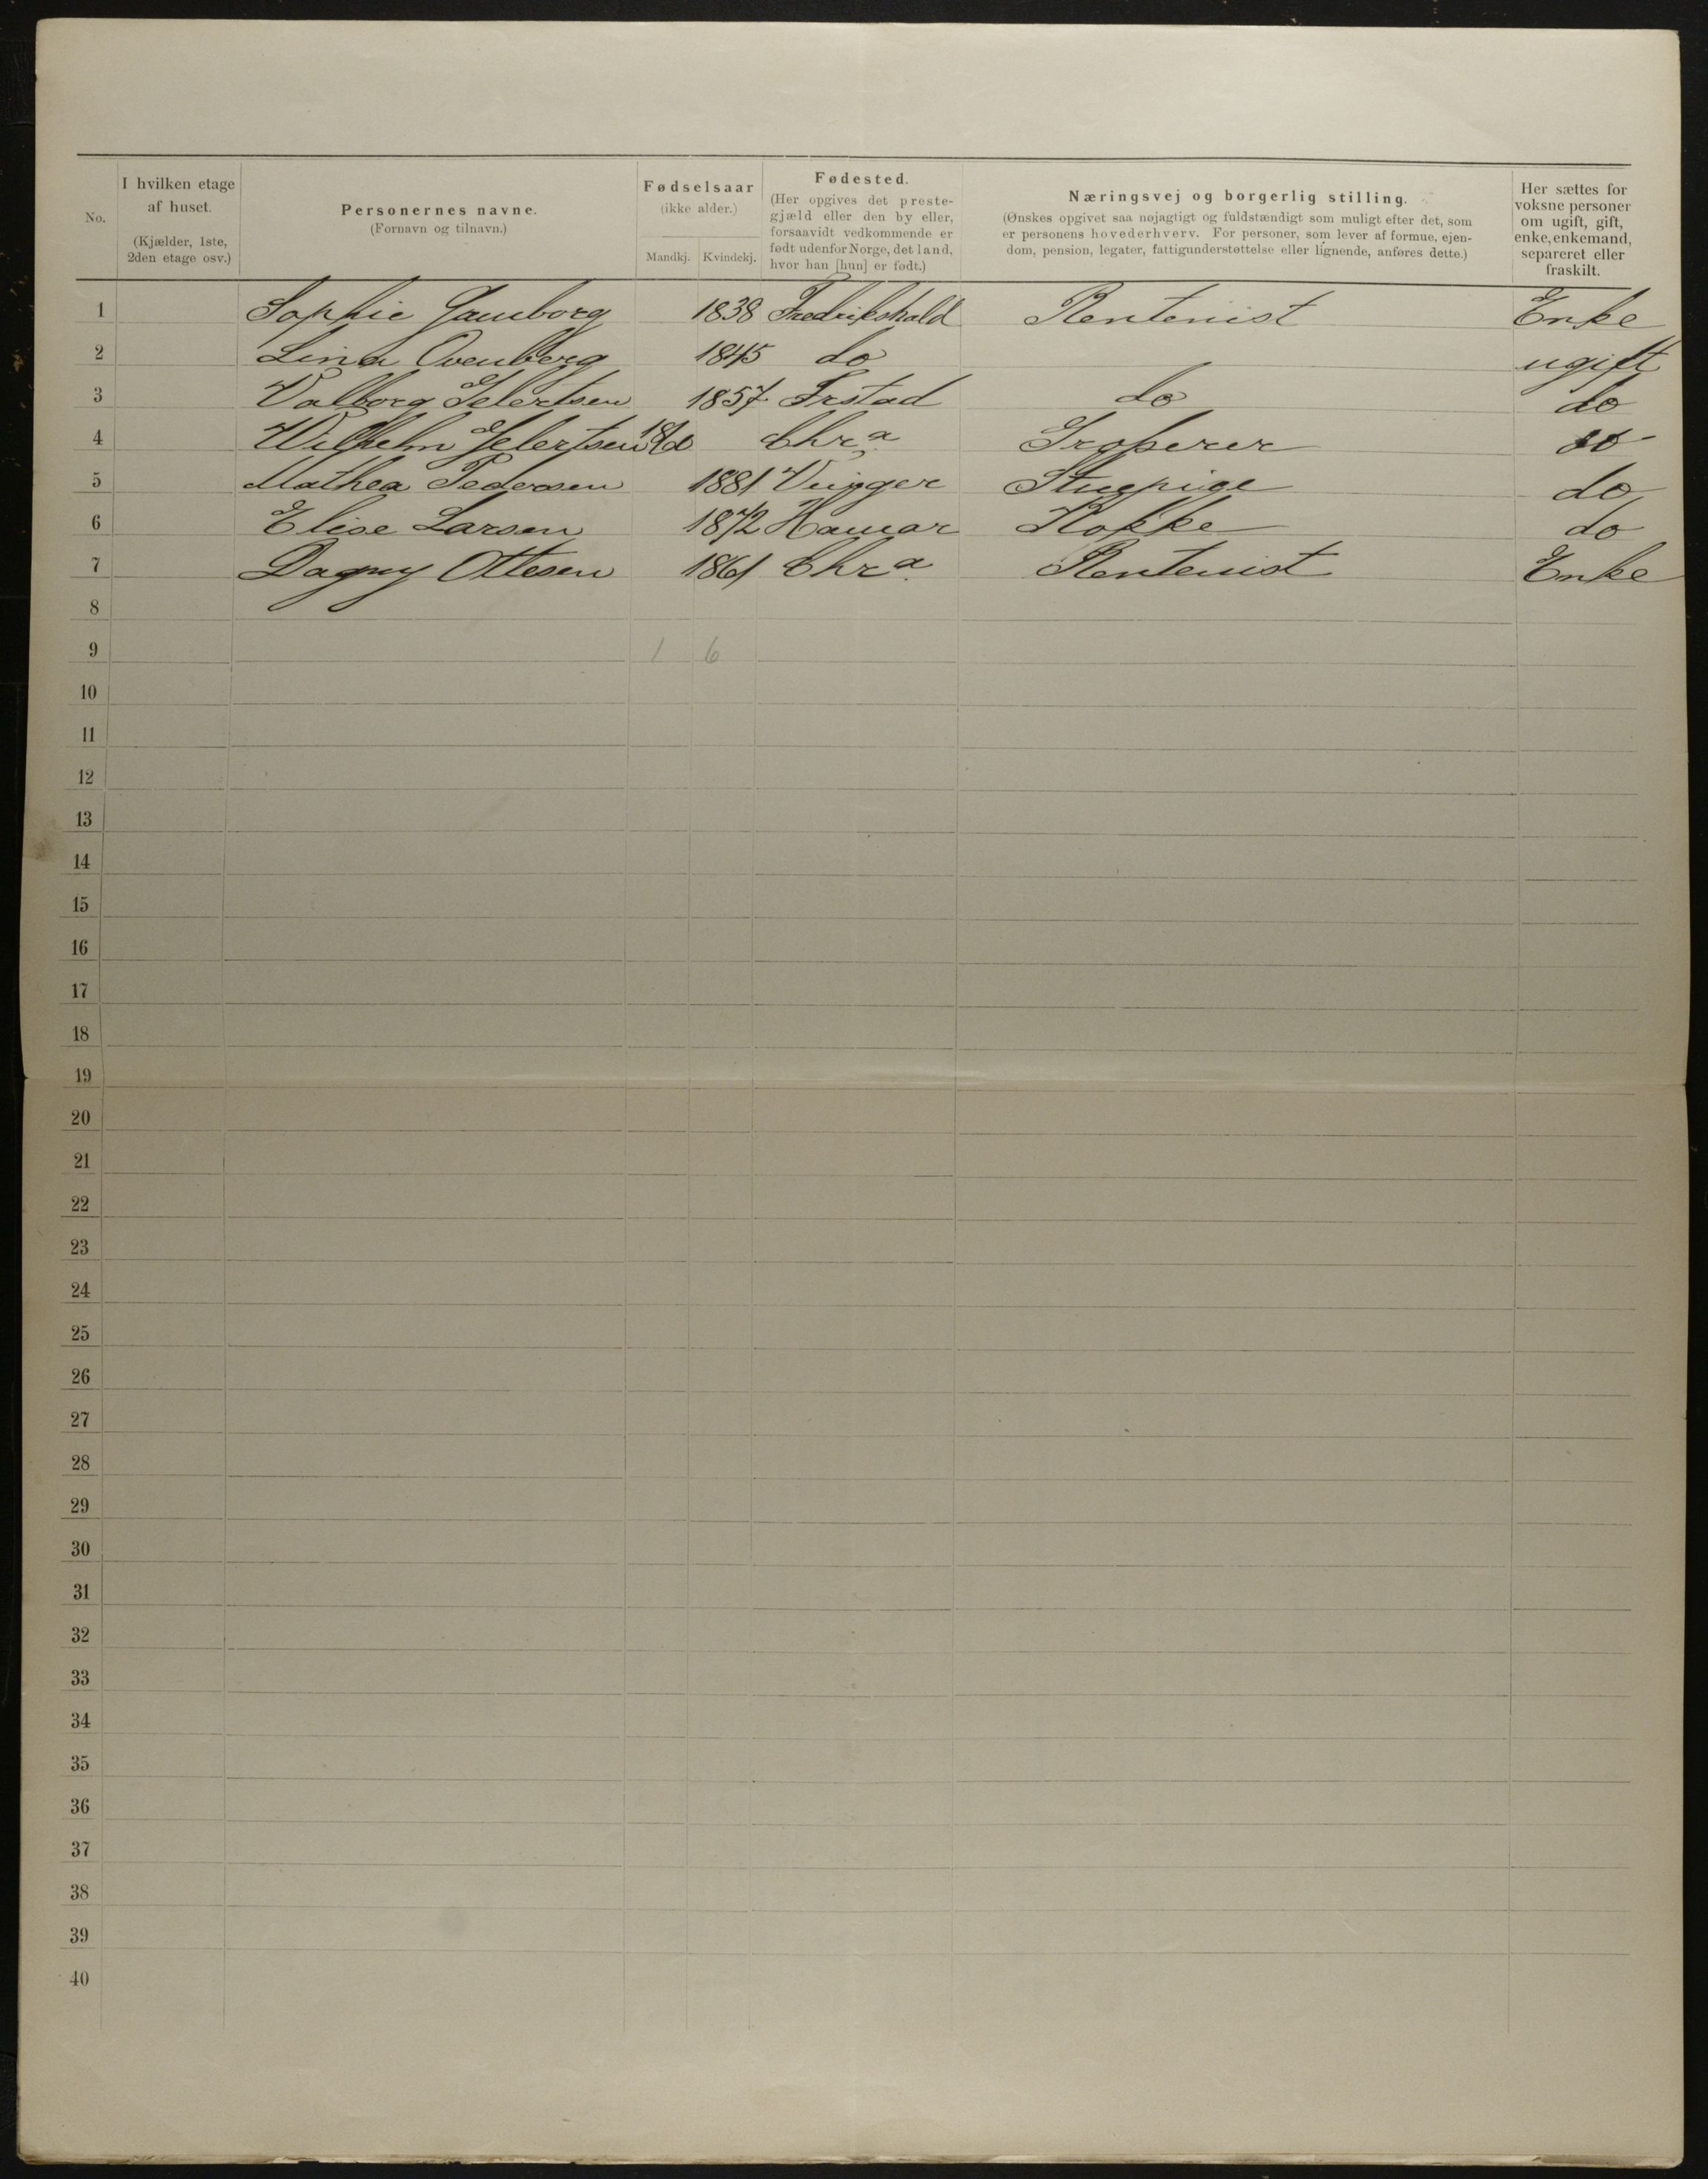 No.
I hvilken etage af huset. (Kjælder, 1ste, 2den etage osv.)
Personernes navne. (Fornavn og tilnavn.)
Fødselsaar (ikke alder.) Mandkj. Kvindekj.
Fødested. (Her opgives det prestegjæld eller den by eller, forsaavidt vedkommende er født udenfor Norge, det land, hvor han [hun] er født.)
Næringsvej og borgerlig stilling. (Ønskes opgivet saa nøjagtigt og fuldstændigt som muligt efter det, som er personens hovederhverv. For personer, som lever af formue, ejendom, pension, legater, fattigunderstøttelse eller lignende, anføres dette.)
Her sættes for voksne personer om ugift, gift, enke, enkemand, separeret eller fraskilt.
1 Sophie Gamborg 1838 Fredrikshald Rentenist Enke
2 Lina Ovenberg 1845 do ugift
3 Valborg Gelertsen 1857 Frstad do do
4 Wilhelm Gelertsen Chr.a Groserer do
5 Mathea Pedersen 1881 Vinger Stuepige do
6 Elise Larsen 1872 Hamar Kokke do
7 Dagny Ottesen 1861 Chr.a Rentenist Enke
8
9 1 6
10
11
12
13
14
15
16
17
18
19
20
21
22
23
24
25
26
27
28
29
30
31
32
33
34
35
36
37
38
39
40